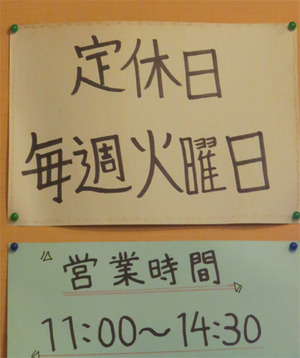 定休日
毎週火曜日
営業時間
11:00～14:30